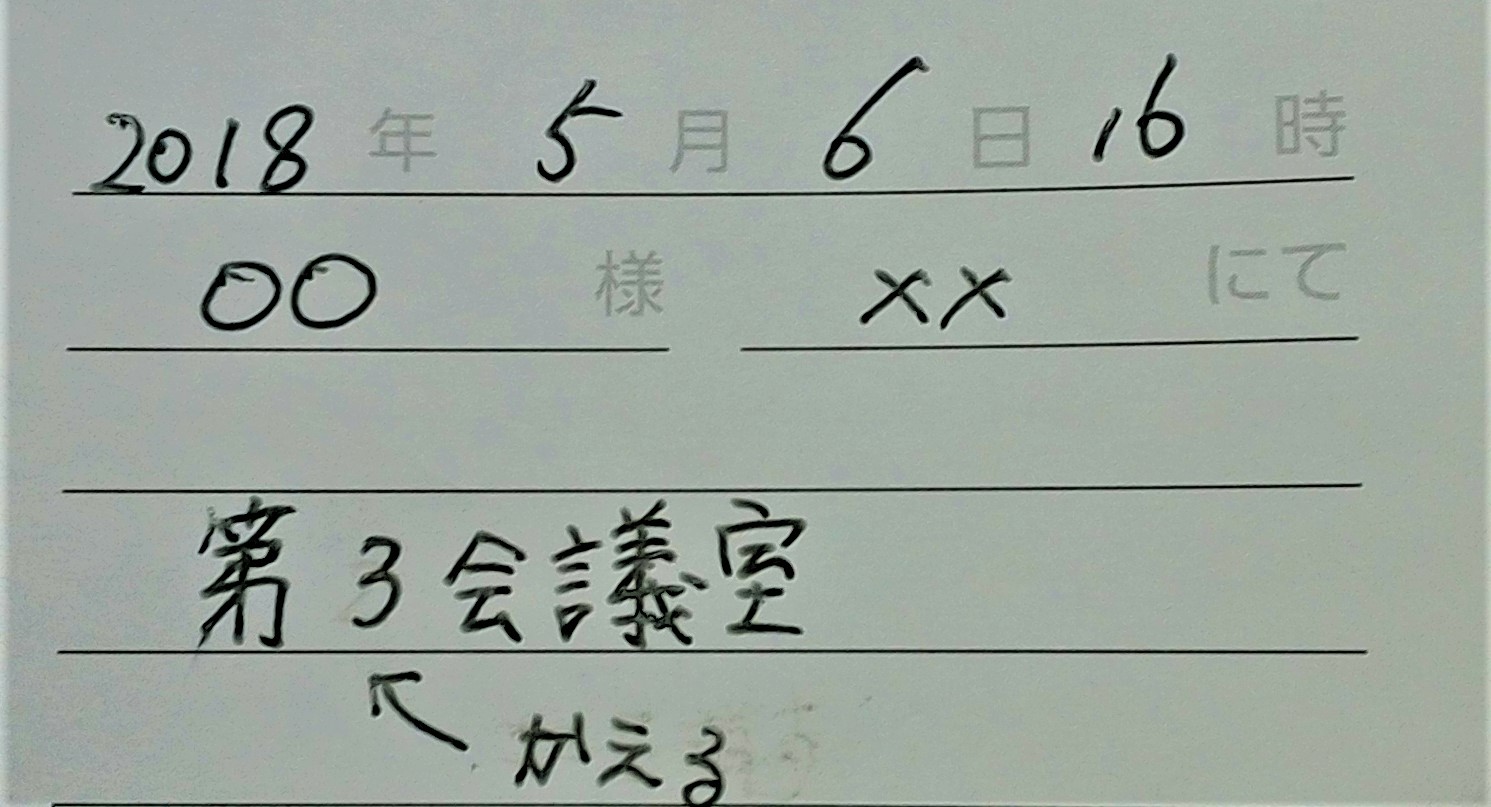 2018年 5月 6日 16時
○○ 様 ×× にて
第3会議室
↖ かえる